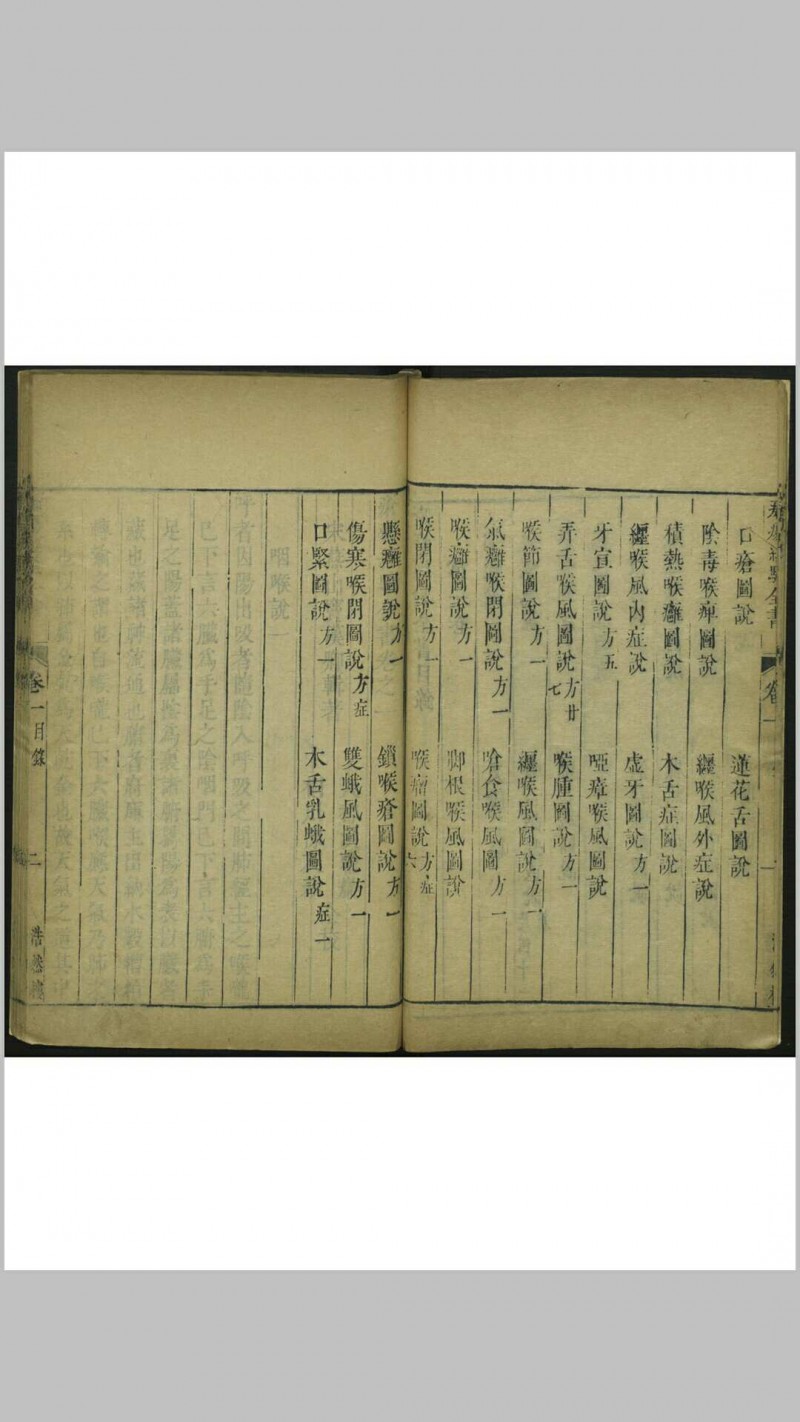 口瘡圖說　蓮花舌圖說
陰毒喉痺圖說　纏喉風外症說
積熱喉癰圖說　木舌症圖說
纏喉風內症說　虛牙圖說方一
牙宣圖說方五　啞瘴喉風圖說
弄舌喉風圖說方廿七　喉腫圖說方一
喉節圖說方一　纏喉風圖說方一
氣癰喉閉圖說方一　嗆食喉風圖方一
喉癰圖說方一　腳根喉風圖說
喉閉圖說方一　喉瘤圖說方症六
懸癰圖說方一　鎖喉瘡圖說方一
傷寒喉閉圖說方症　雙蛾風圖說方一
口緊圖說方一　木舌乳蛾圖說症一
卷一目錄　二　浩然樓